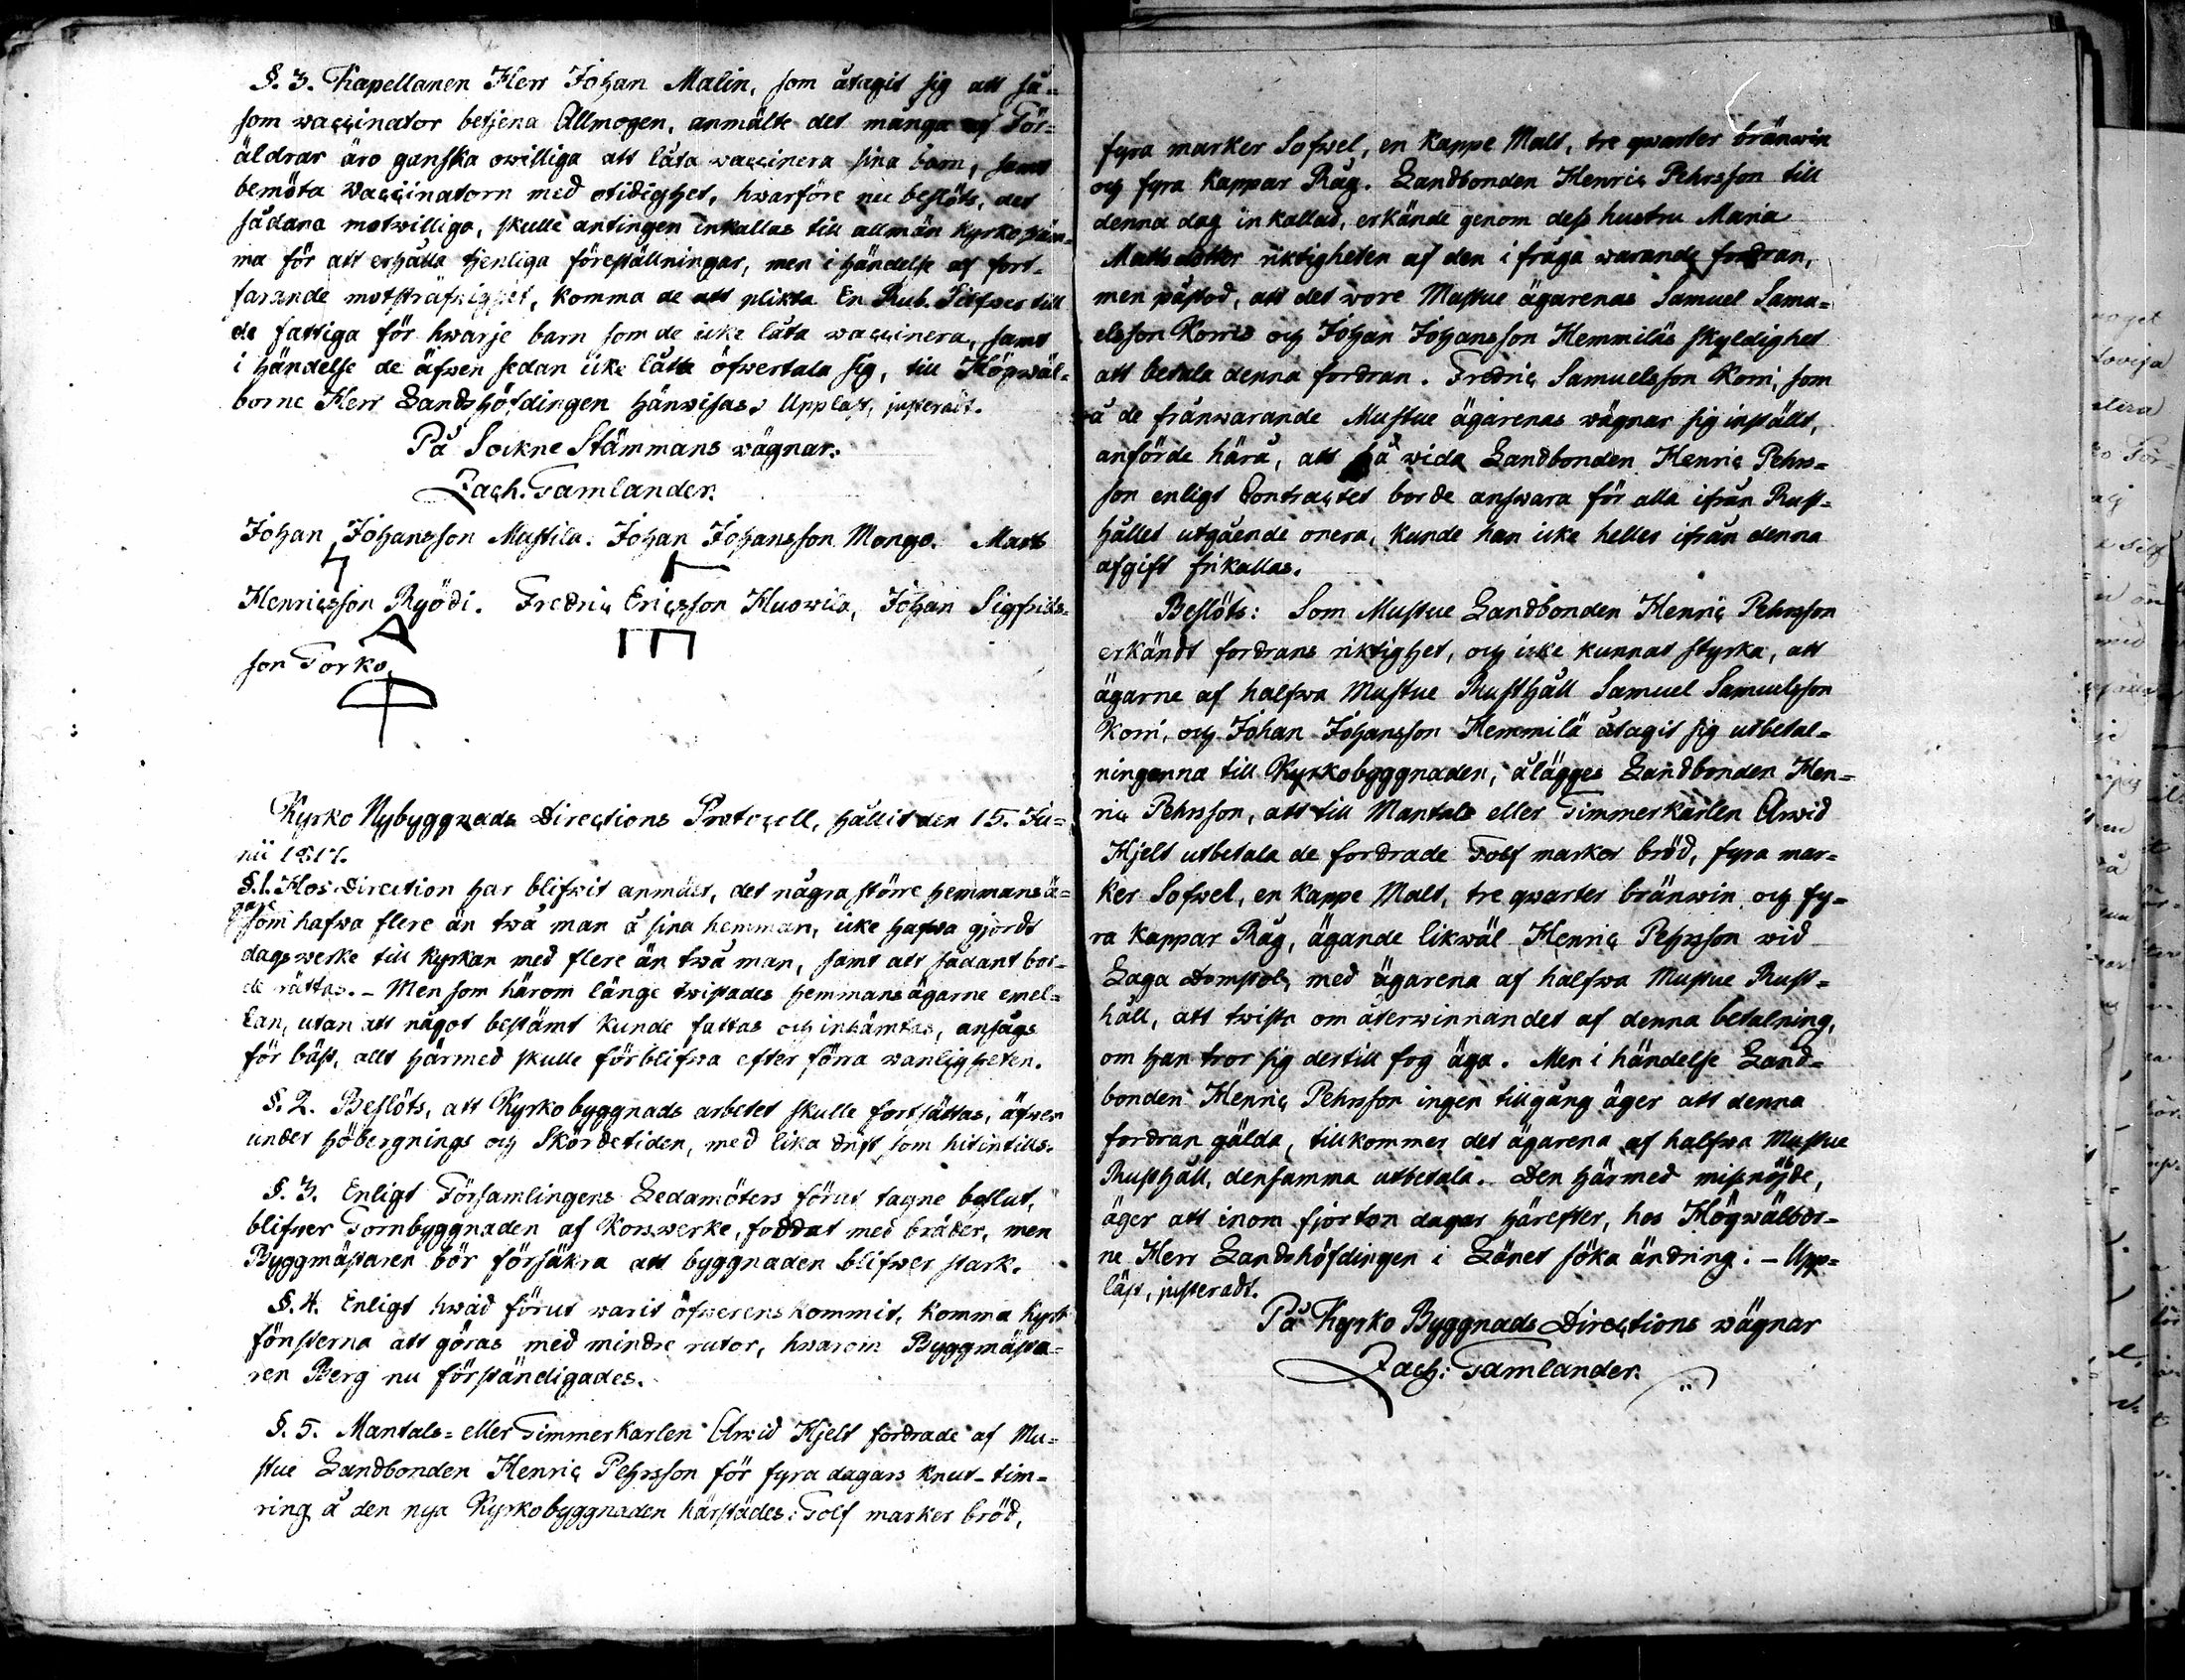 §. 3. Kapellanen Herr Johan Malin, som åtagit sig att så=
som waccinator betjena Allmogen, anmälte det många af För=
äldrar äro ganska owilliga att låta waccinera sina barn, samt
bemöta Waccinatorn med otidighet, hwarföre nu beslöts, det
sådana motwilliga, skulle antingen inkallas till allmän Kyrkostäm=
ma för att erhålla tjenliga föreställningar, men i händelse af fort=
farande motsträfwighet, komma de att plikta En Rub. Silfwer till
de fattiga för hwarje barn som de icke låta waccinera, samt
i händelse de äfwen sedan icke låta öfwertala sig, till Högwäl=
borne Herr Landshöfdingen hänwisas. Uppläst, justeradt.
På Sockne Stämmans wägnar.
Zach. Tamlander.
Johan Johansson Mustila. Johan Johansson Mongo. Matts
Henricsson Ryödi. Fredric Ericsson Huowila, Johan Sigfrids=
son Torko.
Kyrko Nybyggnads Directions Protocoll, hållit den 15. Ju=
nii 1817.
§. 1. Hos Direction har blifwit anmält, det några större hemmansä=
gare
som hafwa flere än twå man å sina hemman, icke hafwa gjordt
dagswerke till Kyrkan med flere än twå man, samt att sådant bor=
de rättas. - Men som härom länge twistades hemmansägarne emel=
lan, utan att något bestämt kunde fattas och inhämtas, ansågs
för bäst, allt härmed skulle förblifwa efter förra wanligheten.
§. 2. Beslöts, att Kyrko byggnads arbetet skulle fortsättas, äfwen
under höbergnings och Skördetiden, med lika drift som hitintills.
§. 3. Enligt Församlingens Ledamöters förut tagne beslut,
blifwer Tornbyggnaden af Korswerke, foddrat med bräder, men
Byggmästaren bör försäkra att byggnaden blifwer stark.
§. 4. Enligt hwad förut warit öfwerenskommit, komma Kyrk
fönsterna att göras med mindre rutor, hwarom Byggmästa=
ren Berg nu förständigades.
§. 5. Mantals= eller Timmerkarlen Arwid Hjelt fordrade af Mu=
stue Landbonden Henric Pehrsson för fyra dagars knut-tim=
ring å den nya Kyrkobyggnaden härstädes: Tolf marker bröd,
fyra marker Sofwel, en Kappe Malt, tre qwarter bränwin
och fyra Kappar Råg. Landbonden Henric Pehrsson till
denna dag inkallad, erkände genom dess hustru Maria
Mattsdotter riktigheten af den i fråga warande fordran,
men påstod, att det wore Mustue ägarenas Samuel Samu=
elsson Korris och Johan Johansson Hemmiläs skyldighet
att betala denna fordran. Fredric Samuelsson Korri, som
å de frånwarande Mustue ägarenas wägnar sig inställt,
anförde härå, att så wida Landbonden Henric Pehrs=
son enligt Contractet borde answara för alla ifrån Rust=
hållet utgående onera, kunde han icke heller ifrån denna
afgift frikallas.
Beslöts: Som Mustue Landbonden Henric Pehrsson
erkändt fordrans riktighet, och icke kunnat styrka, att
ägarne af halfwa Mustue Rusthåll Samuel Samuelsson
Korri, och Johan Johansson Hemmilä åtagit sig utbetal=
ningarna till Kyrkobyggnaden, ålägges Landbonden Hen=
ric Pehrsson, att till Mantals eller Timmerkarlen Arwid
Hjelt utbetala de fordrade Tolf marker bröd, fyra mar=
ker Sofwel, en Kappe Malt, tre qwarter bränwin och fy=
ra Kappar Råg, ägande likwäl Henric Pehrsson wid
Laga Domstol, med ägarena af halfwa Mustue Rust=
håll, att twista om återwinnandet af denna betalning,
om han tror sig dertill fog äga. Men i händelse Land=
bonden Henric Pehrsson ingen tillgång äger att denna
fordran gälda, tillkommer det ägarena af halfwa Mustue
Rusthåll, densamma utbetala. Den härmed missnöjde,
äger att inom fjorton dagar härefter, hos Högwälbor=
ne Herr Landshöfdingen i Länet söka ändring. - Upp=
läst, justeradt.
På Kyrko Byggnads Directions wägnar
Zach: Tamlander.